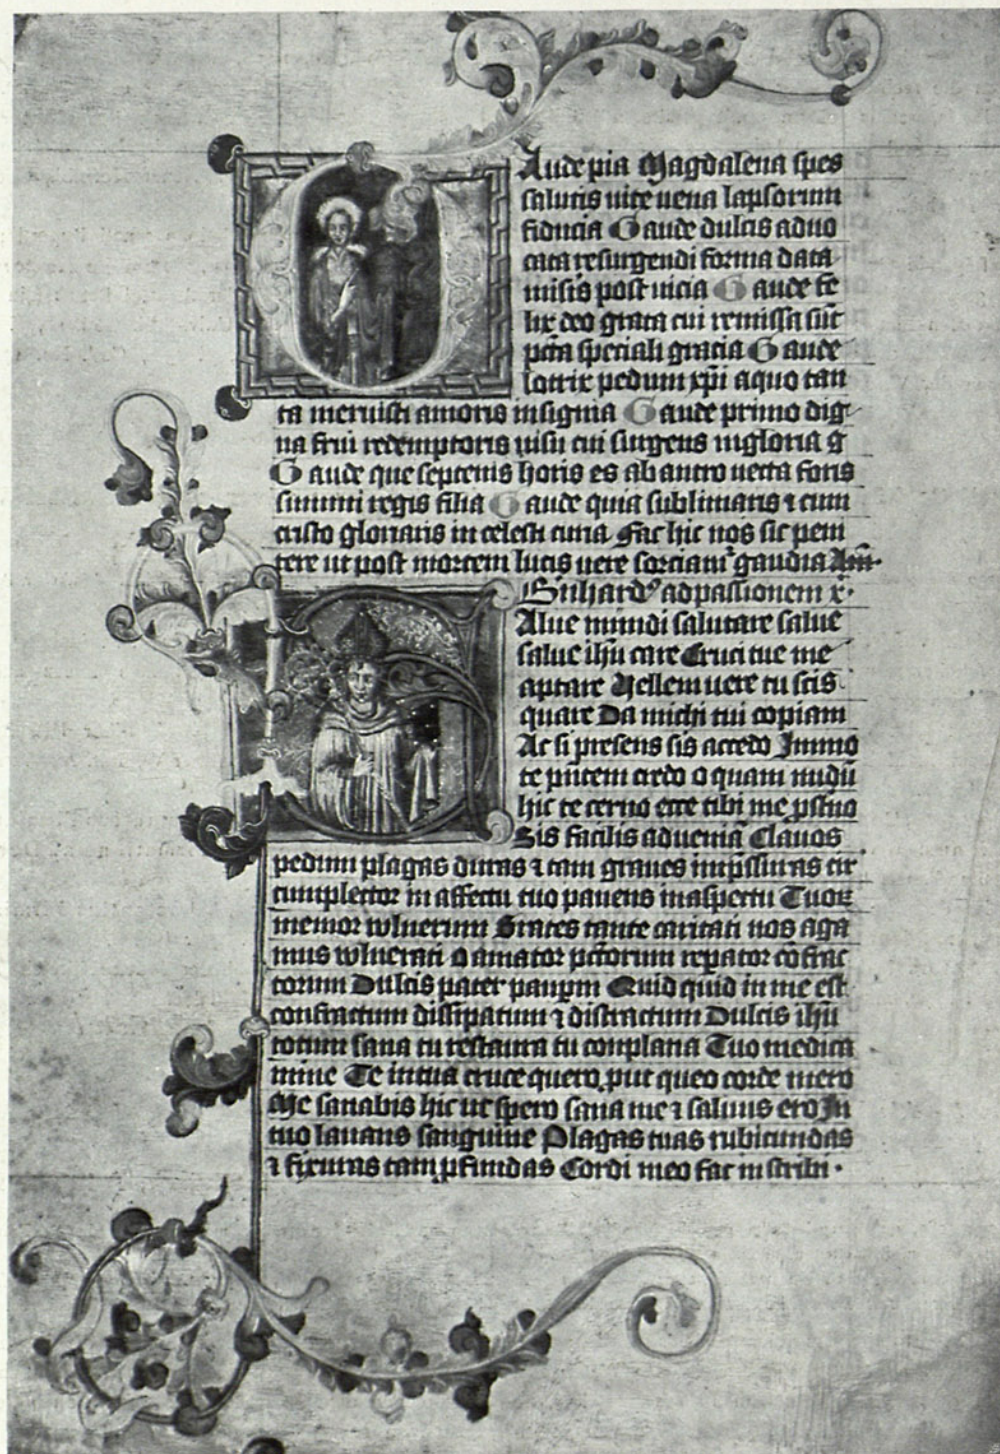 Aude pia Magdalena spes
salutis vite vena lapsorum
fiducia Gaude dulcis advo
cata resurgendi forma data
misis post vicia Gaude fe
lix deo grata cui remissa sūt
pcta speciali gracia Gaude
lotrix pedum xpi a quo tan
ta meruisti amoris insignia Gaude primo dig
na frui redemptoris visu cui surgens in gloria
Gaude que septenis horis es ab antro vecta foris
summi regis filia Gaude quia sublimaris ⁊ cum
cristo gloriaris in celesti curia fac hic nos sic peni
tere ut post mortem lucis vere sorciam̄ gaudia Am̄
ad passionem x
Alue mundi salutare salue
salue ihu care Cruci tue me
aptare Vellem vere tu scis
quare Da michi tui copiam
Ac si presens sis accedo Immo
te pntem credo O quam nudū
hic te cerno ecce tibi me
Sis facilis ad veniā Clauos
pedum plagas duras ⁊ tam graues imp̄ssuras cir
cumplector in affectu tuo pauens in aspectu Tuoꝝ
memor wlnerum Grates tante caritati nos aga
mus wlnerati O amator pctorum repator cōfrac
torum Dulcis pater paupm Quid quid in me est
confractum dissipatum ⁊ distractum Dulcis ihu
totum sana tu restaura tu conplana Tuo medica
mine Te in tua cruce quero put queo corde mero
Me sanabis hic ut spero sana me ⁊ saluus ero In
tuo lauans sanguine Plagas tuas rubicundas
⁊ fixuras tam pfundas Cordi meo fac in scribi